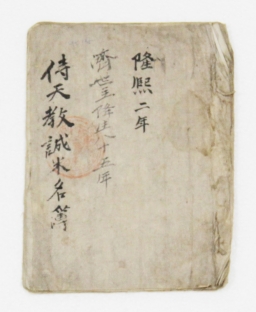 隆熙二年
濟世主降生八十五年
侍天教誠米名簿